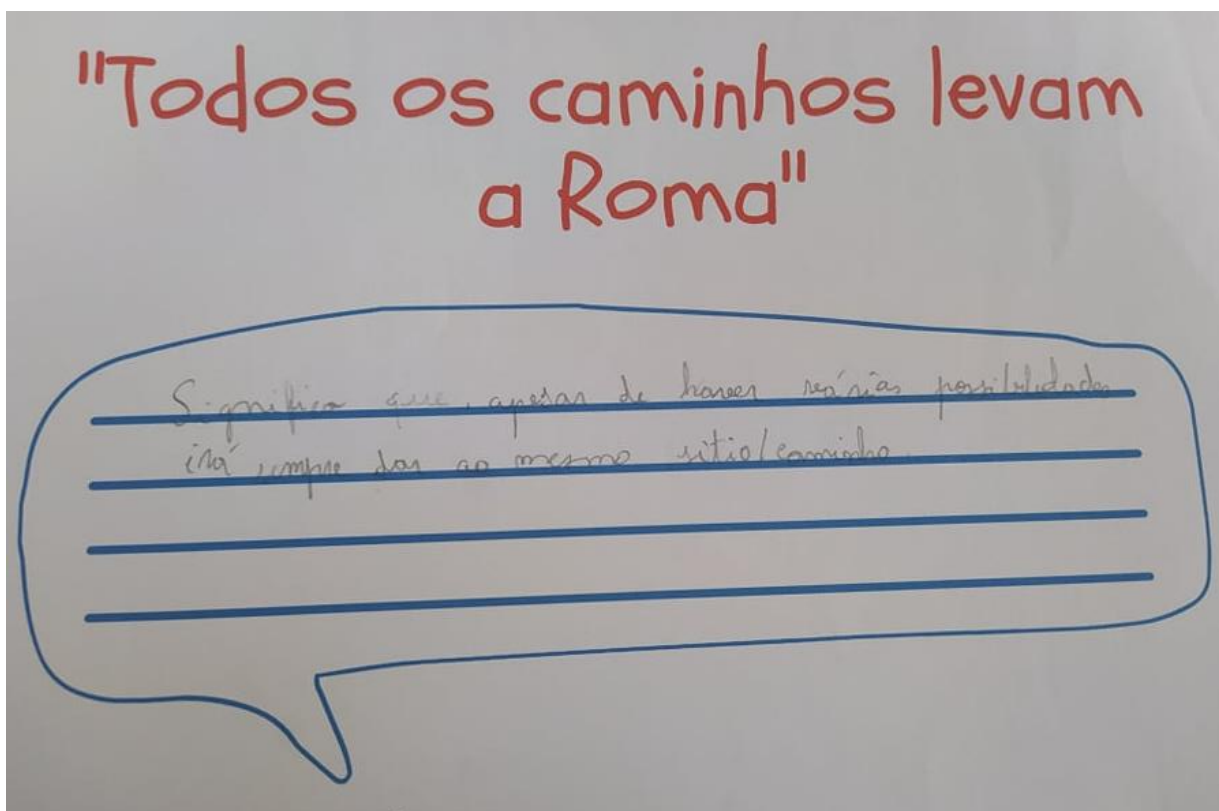 "Todos os caminhos levam
a Roma"
Significa que, apesar de haver várias possibilidades
irá sempre dar ao mesmo sitio/caminho.